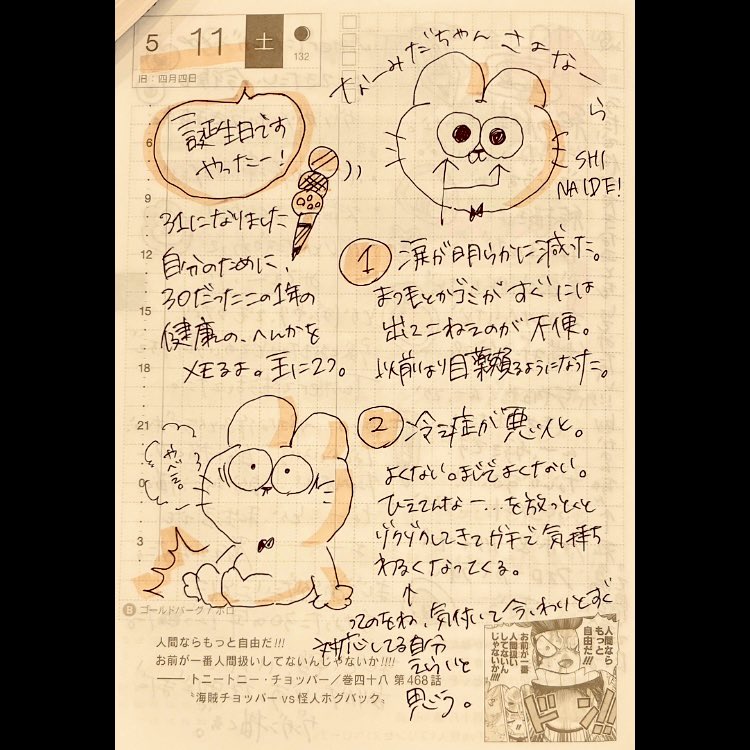 5 11 土
132
旧:四月四日
なーみだちゃん さよなーら
SHI
NAIDE!
誕生日です
やったー!
31になりました
自分のために、
30だったこの1年の
健康の、へんかを
メモるよ。主に2つ。
1 涙が明らかに減った。
まつ毛とかゴミがすぐには
出てこねえのが不便。
以前より目薬頼るようになった。
2 冷え症が悪化。
よくない。まじでよくない。
ひえてんなー…を放っとくと
ゾクゾクしてきてガチで気持ち
わるくなってくる。
↑
ってのをね、気付いて今、わりとすぐ
対応してる自分
えらいと
思う。
やべえ。
6
9
12
15
18
21
0
3
B ゴールドバーグ/ホロ
人間ならもっと自由だ!!!
お前が一番人間扱いしてないんじゃないか!!!!
―― トニートニー・チョッパー/巻四十八 第468話
"海賊チョッパーvs怪人ホグバック"
人間なら
もっと
自由だ!!!
お前が一番
人間扱い
してないん
じゃないか!!!!
ドン!!